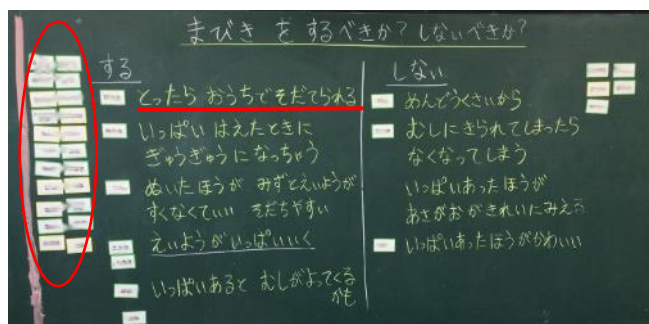 まびきをするべきか?しないべきか?
する
とったら おうちでそだてられる
いっぱい はえたときに
ぎゅうぎゅうになっちゃう
ぬいたほうが みずとえいようが
すくなくていい そだちやすい
えいようがいっぱいいく
いっぱいあると むしがよってくる
かも
しない
めんどうくさいから
むしにきられてしまったら
なくなってしまう
いっぱいあったほうが
あさがおがきれいにみえる
いっぱいあったほうがかわいい